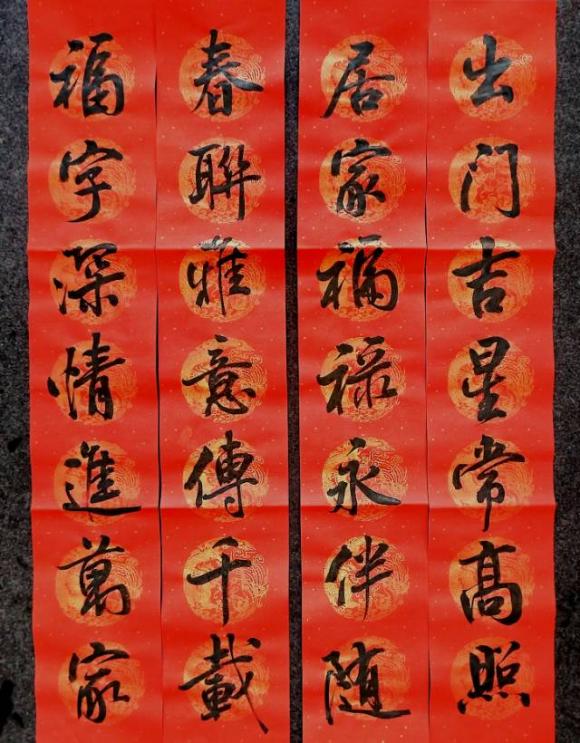 出门吉星常高照
居家福禄永伴随
春聯雅意傳千載
福字深情進萬家